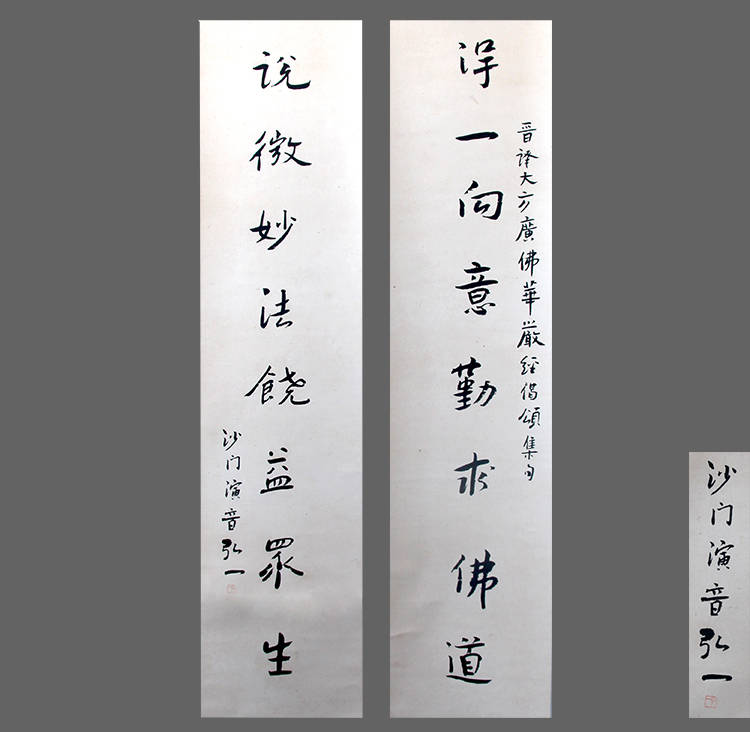 晋譯大方廣佛華嚴經偈頌集句
得一向意勤求佛道
說微妙法饒益眾生
沙门演音弘一
沙门演音弘一